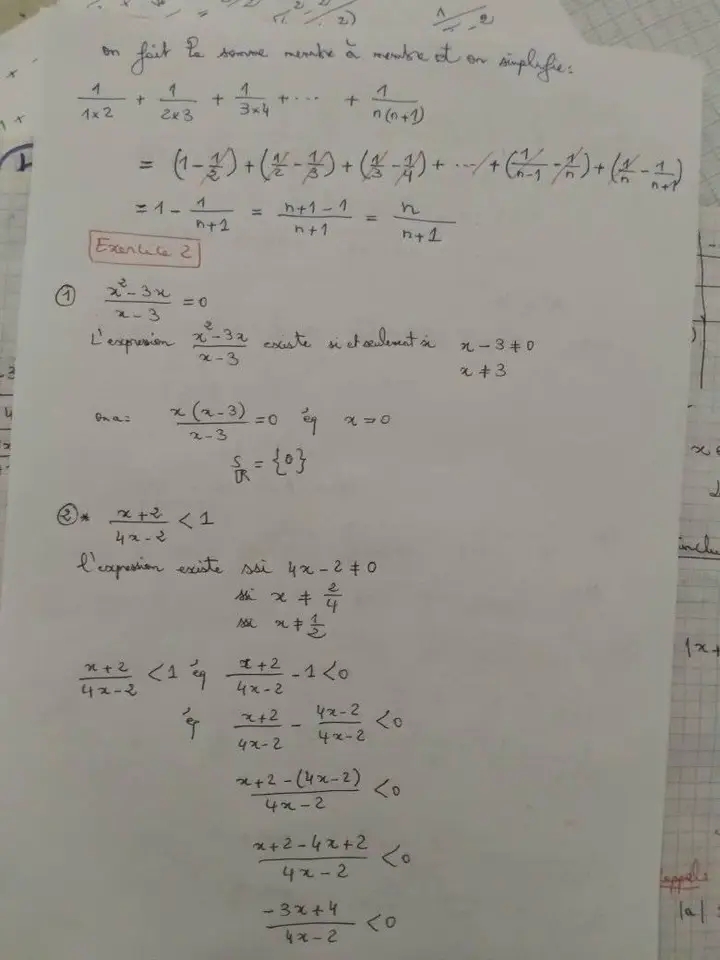 on fait la somme membre à membre et on simplifie :
1/(1×2) + 1/(2×3) + 1/(3×4) + ... + 1/(n(n+1))
= (1 - 1/2) + (1/2 - 1/3) + (1/3 - 1/4) + ... + (1/(n-1) - 1/n) + (1/n - 1/(n+1))
= 1 - 1/(n+1) = (n+1-1)/(n+1) = n/(n+1)
Exercice 2
① (x² - 3x)/(x - 3) = 0
L'expression (x² - 3x)/(x - 3) existe si et seulement si x - 3 ≠ 0
x ≠ 3
on a : x(x-3)/(x-3) = 0 éq x = 0
S_ℝ = {0}
② * (x+2)/(4x-2) < 1
l'expression existe ssi 4x - 2 ≠ 0
ssi x ≠ 2/4
ssi x ≠ 1/2
(x+2)/(4x-2) < 1 éq (x+2)/(4x-2) - 1 < 0
éq (x+2)/(4x-2) - (4x-2)/(4x-2) < 0
(x+2-(4x-2))/(4x-2) < 0
(x+2-4x+2)/(4x-2) < 0
(-3x+4)/(4x-2) < 0